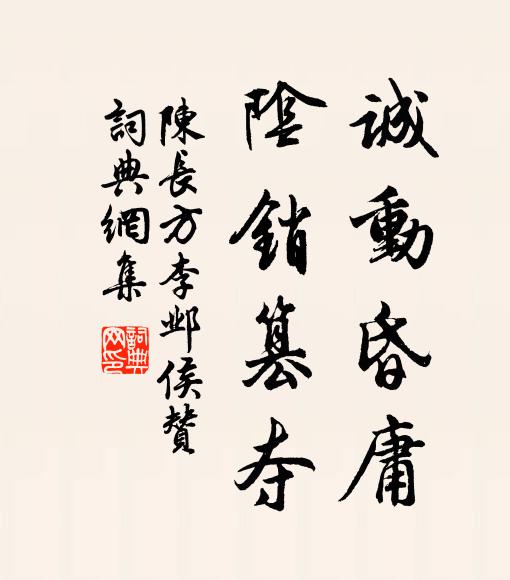 誠動昏庸
陰銷篡夺
陳長方李邺侯贊
詞典網集
詞典网印